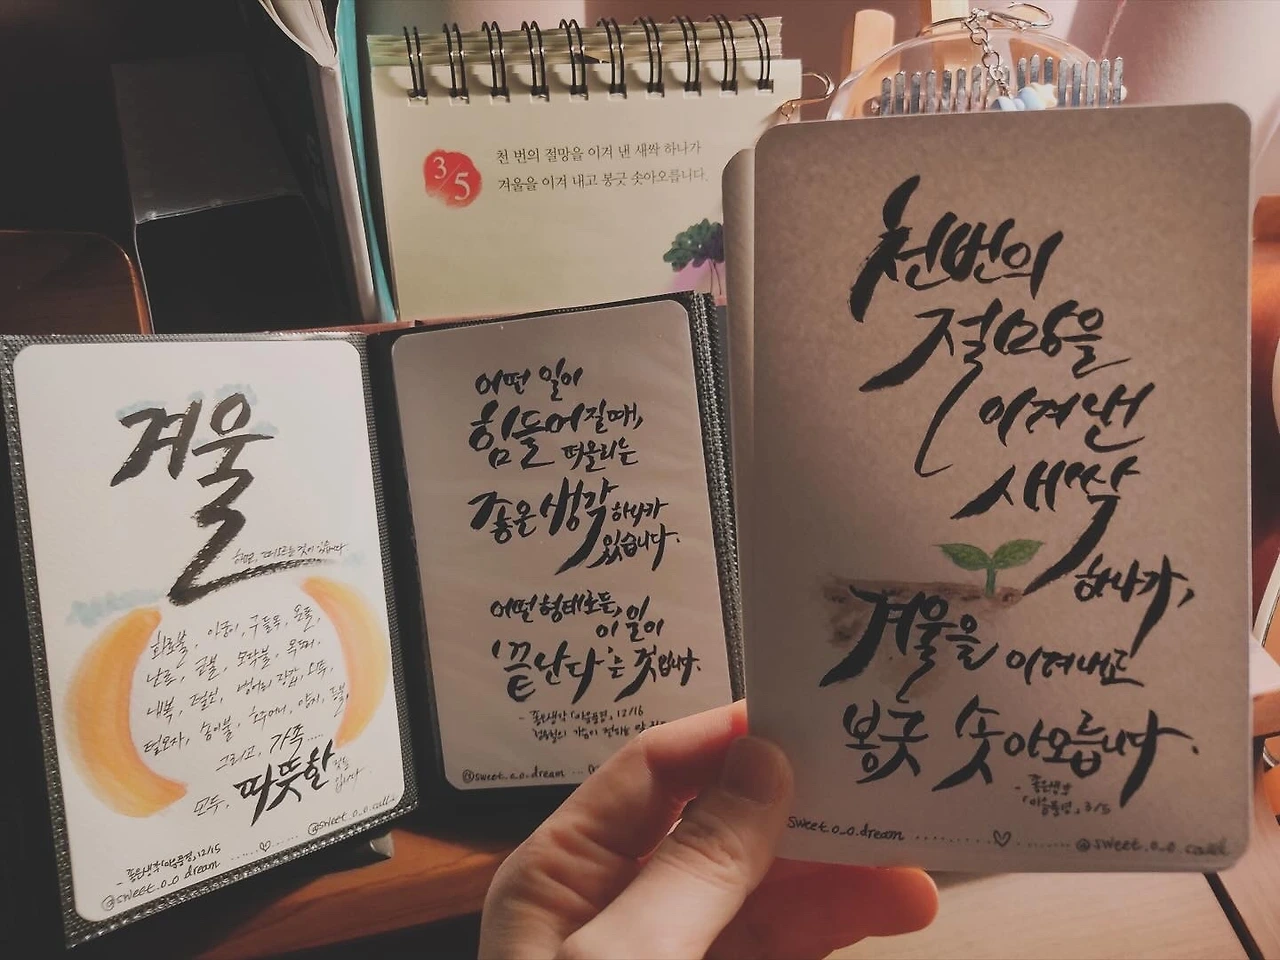 3/5
천 번의 절망을 이겨 낸 새싹 하나가
겨울을 이겨 내고 봉긋 솟아오릅니다.
겨울
하면, 떠오르는 것이 있습니다
화롯불, 아궁이, 구들목, 온돌,
난로, 군불, 모닥불, 목도리,
내복, 털신, 벙어리장갑,
털모자, 솜이불, 호주머니, 양지,
그리고, 가족.....
모두, 따뜻한 것들
입니다
- 좋은생각 「마음풍경」, 12/15
@sweet.o_o.dream ...♡... @sweet.o.o.calli
어떤 일이
힘들어질때,
떠올리는
좋은 생각 하나가
있습니다.
어떤형태로든,
이 일이
'끝난다'는 것입니다.
- 좋은생각 「마음풍경」, 12/16
@sweet.o_o.dream ...
천번의
절망을
이겨낸
새싹
하나가,
겨울을 이겨내고
봉긋 솟아오릅니다.
- 좋은생각
「마음풍경」, 3/5
sweet.o_o.dream .......♡....... @sweet.o.o.calli